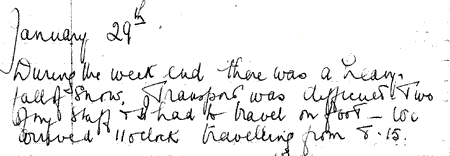 January 29th
During the week end there was a heavy
fall of snow. Transport was difficult Two
of my staff & I had to travel on foot – We
arrived 11 oclock travelling from 8.15.